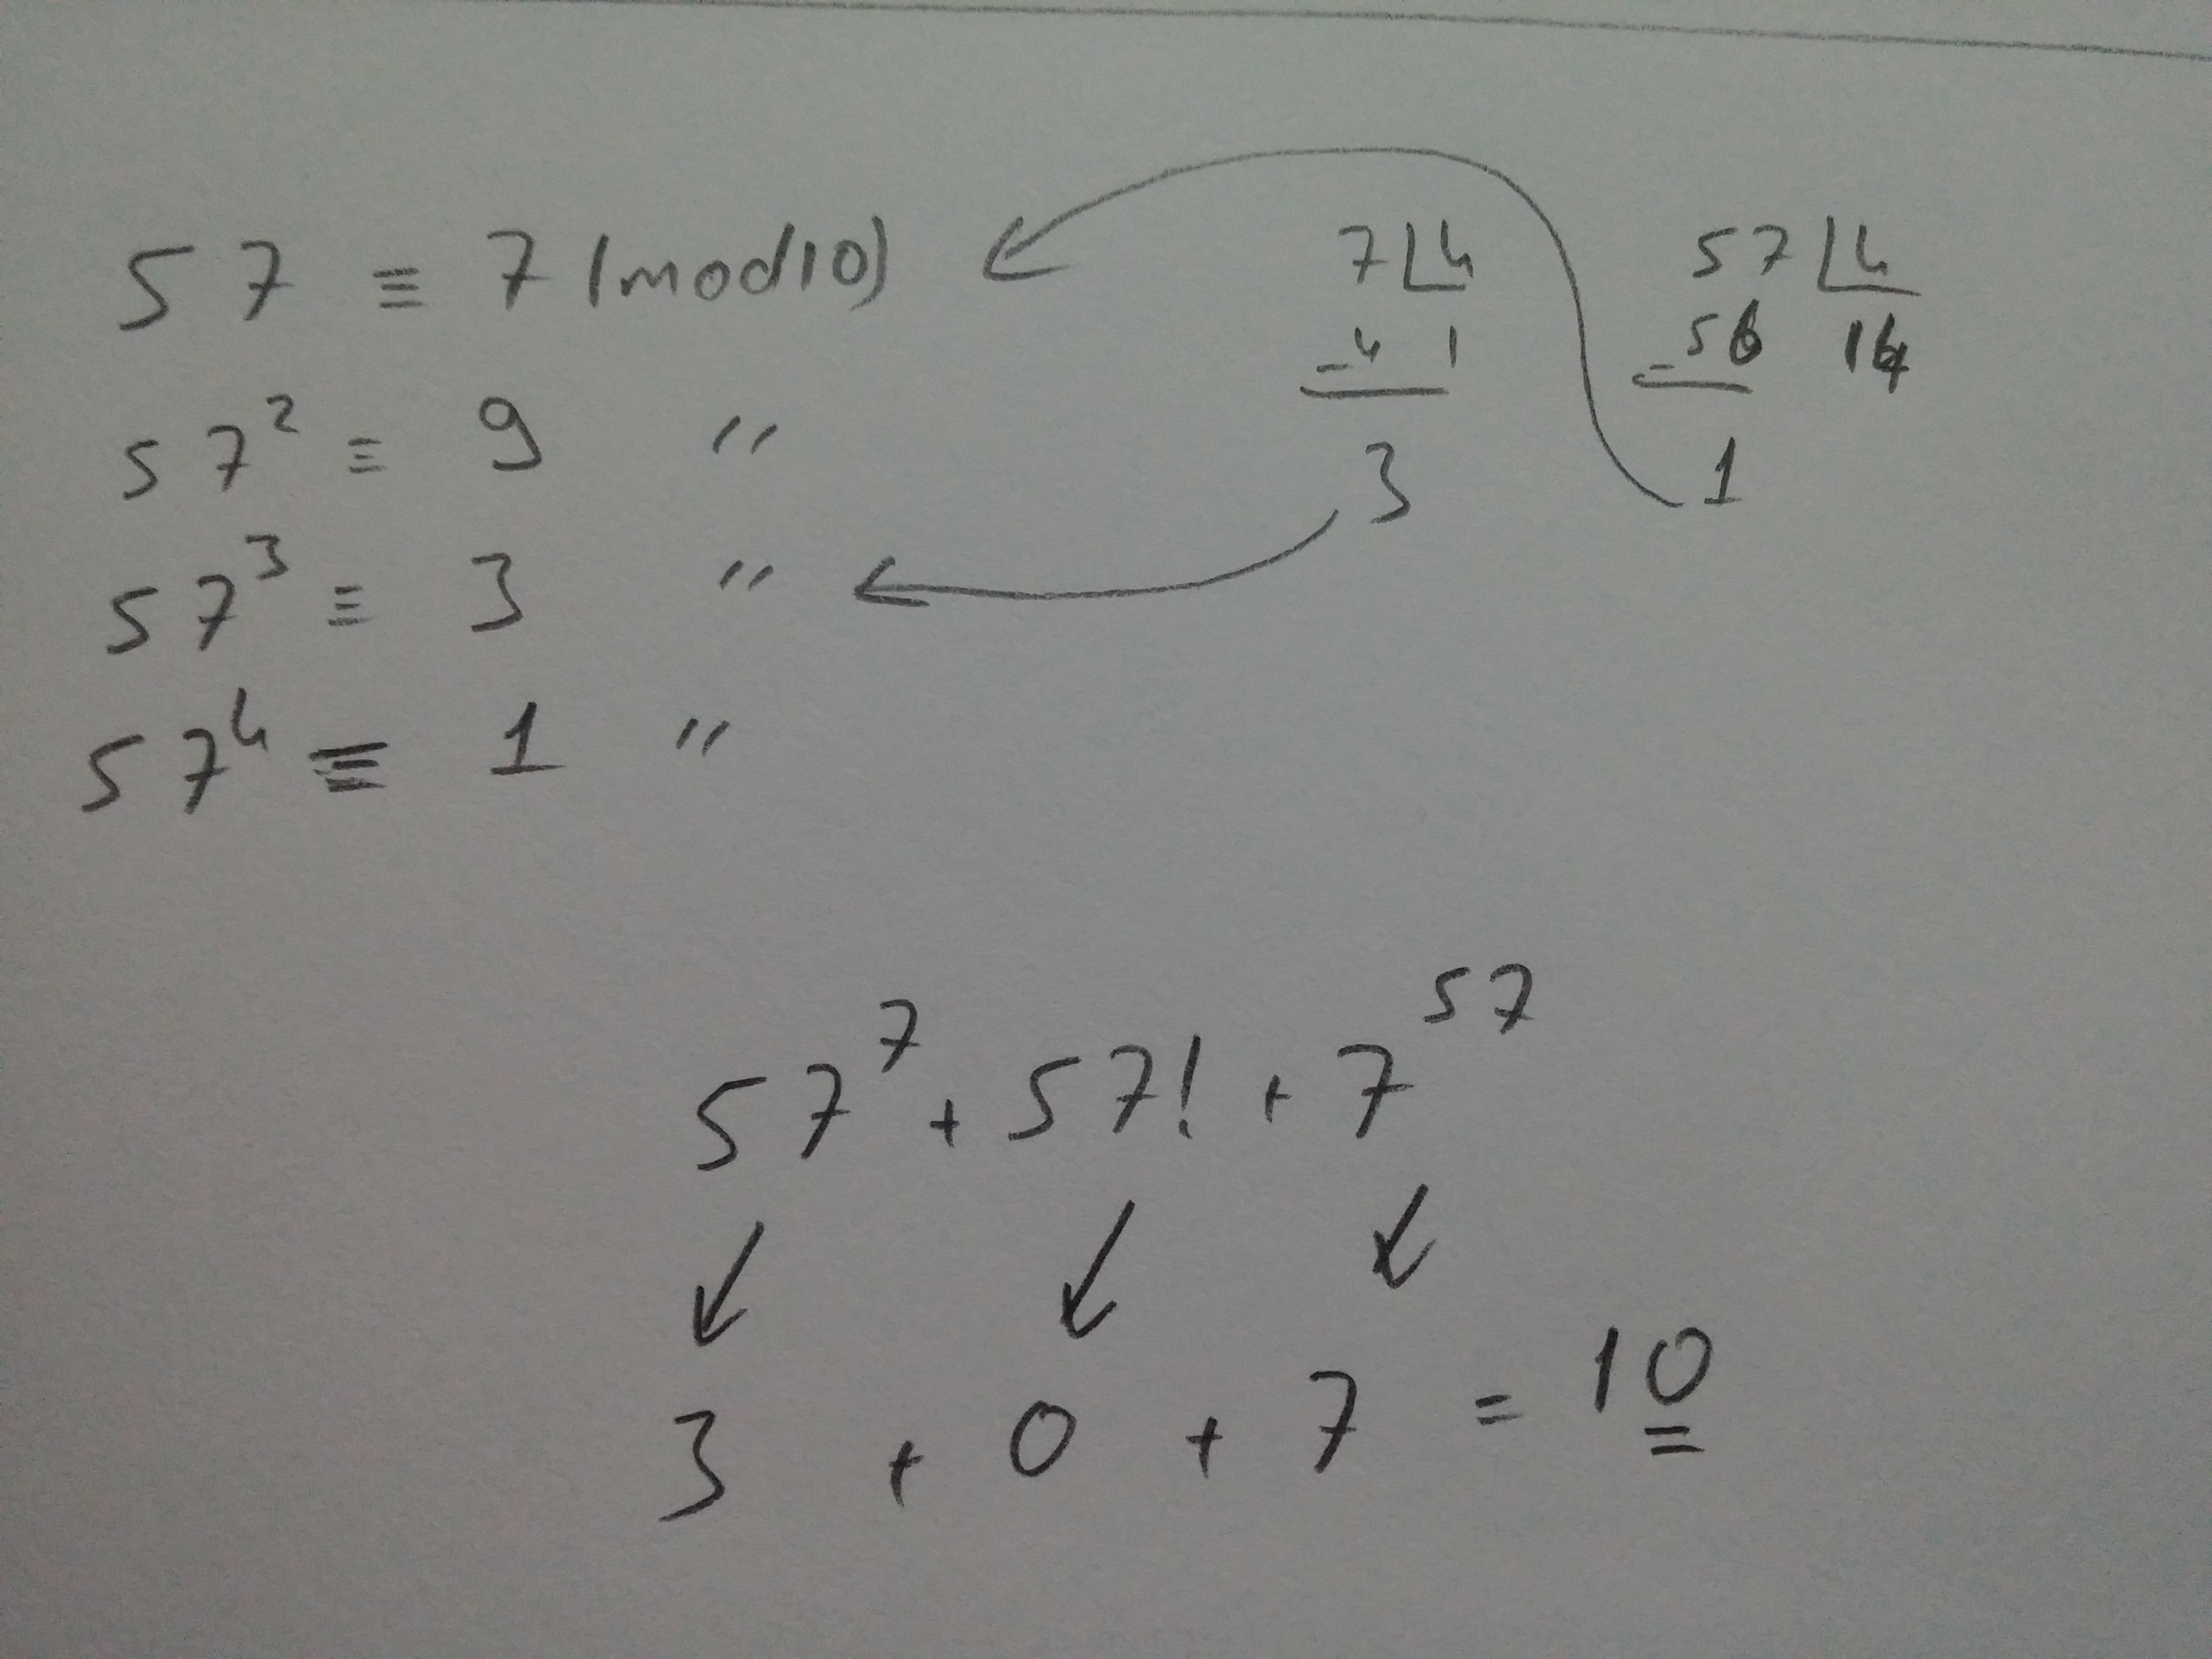 57 ≡ 7 (mod10)
57² ≡ 9 "
57³ ≡ 3 "
57⁴ ≡ 1 "
7 | 4
-4 1
3
57 | 4
-56 14
1
57⁷ + 57! + 7⁵⁷
3 + 0 + 7 = 10